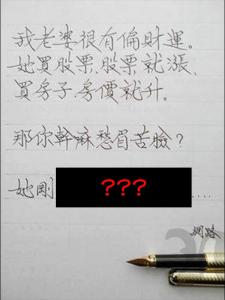 我老婆很有偏財運。
她買股票,股票就漲,
買房子,房價就升。
那你幹麻愁眉苦臉？
她剛 ??? ....
網路